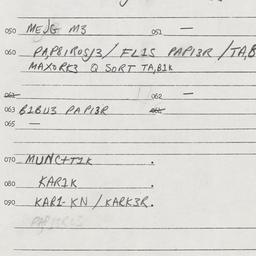 050 ME,JG M3 051 —
060 PAP8IROS/3/ FLIS PAPI3R /TA,B
MAXORK3 Q SORT TA,B1K
061 062 —
063 B1BU3 PAPI3R 064
065 —
070 MUNC+T1K .
080 KAR1K .
090 KAR1-KN / KARK3R.